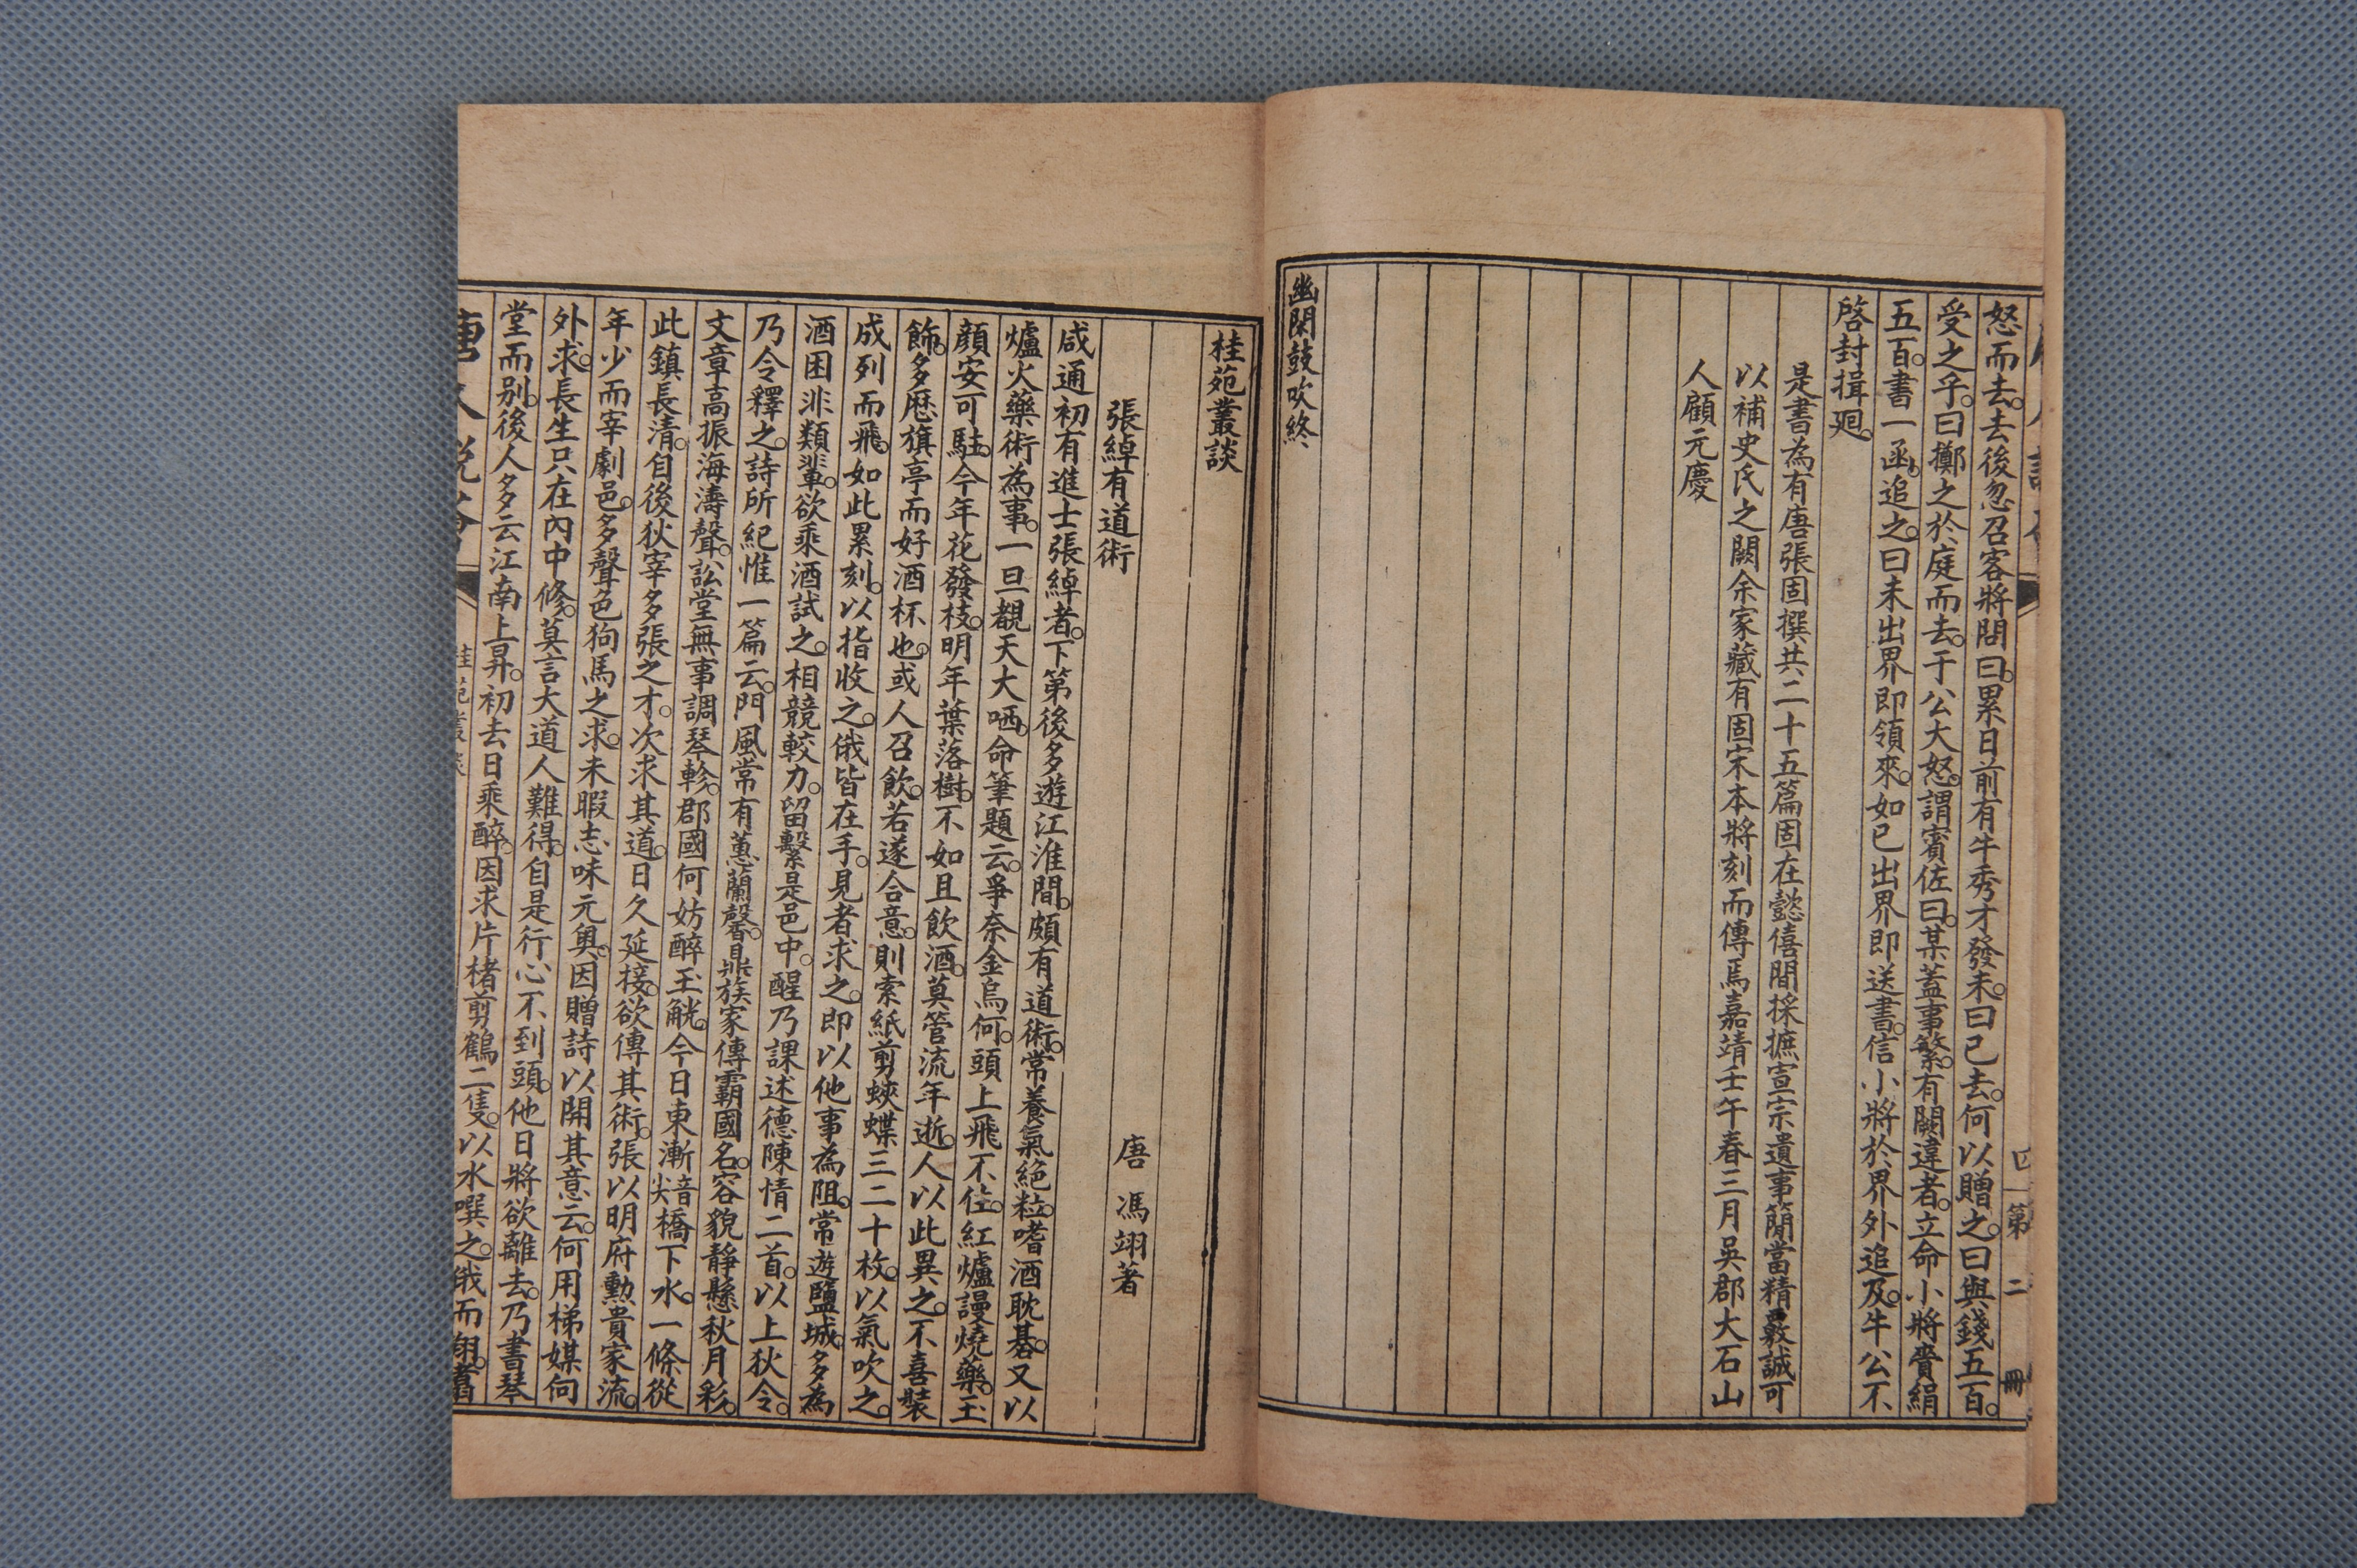 怒而去。去後忽召客將問曰。累日前有牛秀才發未。曰已去。何以贈之。曰與錢五百。
受之乎。曰擲之於庭而去。于公大怒。謂賓佐曰。某蓋事繁。有闕違者。立命小將賫絹
五百。書一函。追之。曰未出界即領來。如已出界即送書。信小將於界外追及。牛公不
啓封揖廻。
是書為有唐張固撰共二十五篇固在懿僖間採摭宣宗遺事簡當精覈誠可
以補史氏之闕余家藏有固宋本將刻而傳焉嘉靖壬午春三月吳郡大石山
人顧元慶
幽閑鼓吹終
四
第二冊
桂苑叢談
唐 馮翊著
張綽有道術
咸通初有進士張綽者。下第後多遊江淮間。頗有道術。常養氣絕粒。嗜酒耽棊。又以
爐火藥術為事。一旦覩天大哂。命筆題云。爭奈金烏何。頭上飛不住。紅爐謾燒藥。玉
顏安可駐。今年花發枝。明年葉落樹。不如且飲酒。莫管流年逝。人以此異之。不喜裝
飾。多歷旗亭而好酒杯也。或人召飲。若遂合意。則索紙剪蛺蝶三二十枚。以氣吹之。
成列而飛。如此累刻。以指收之。俄皆在手。見者求之。即以他事為阻。常遊鹽城。多為
酒困非類輩。欲乘酒試之。相競較力。留繫是邑中。醒乃課述德陳情二首。以上狄令。
乃令釋之。詩所紀惟一篇云。門風常有蕙蘭馨。鼎族家傳霸國名。容貌靜懸秋月彩。
文章高振海濤聲。訟堂無事調琴軫。郡國何妨醉玉觥。今日東漸㟁橋下水。一條從
此鎮長清。自後狄宰多張之才。次求其道。日久延接。欲傳其術。張以明府勳貴家流。
年少而宰劇邑。多聲色狗馬之求。未暇志味元奧。因贈詩以開其意云。何用梯媒向
外求。長生只在內中修。莫言大道人難得。自是行心不到頭。他日將欲離去。乃書琴
堂而別。後人多云江南上昇。初去日乘醉。因求片楮剪鶴二隻。以水噀之。俄而翔翥
唐人說薈
桂苑叢談